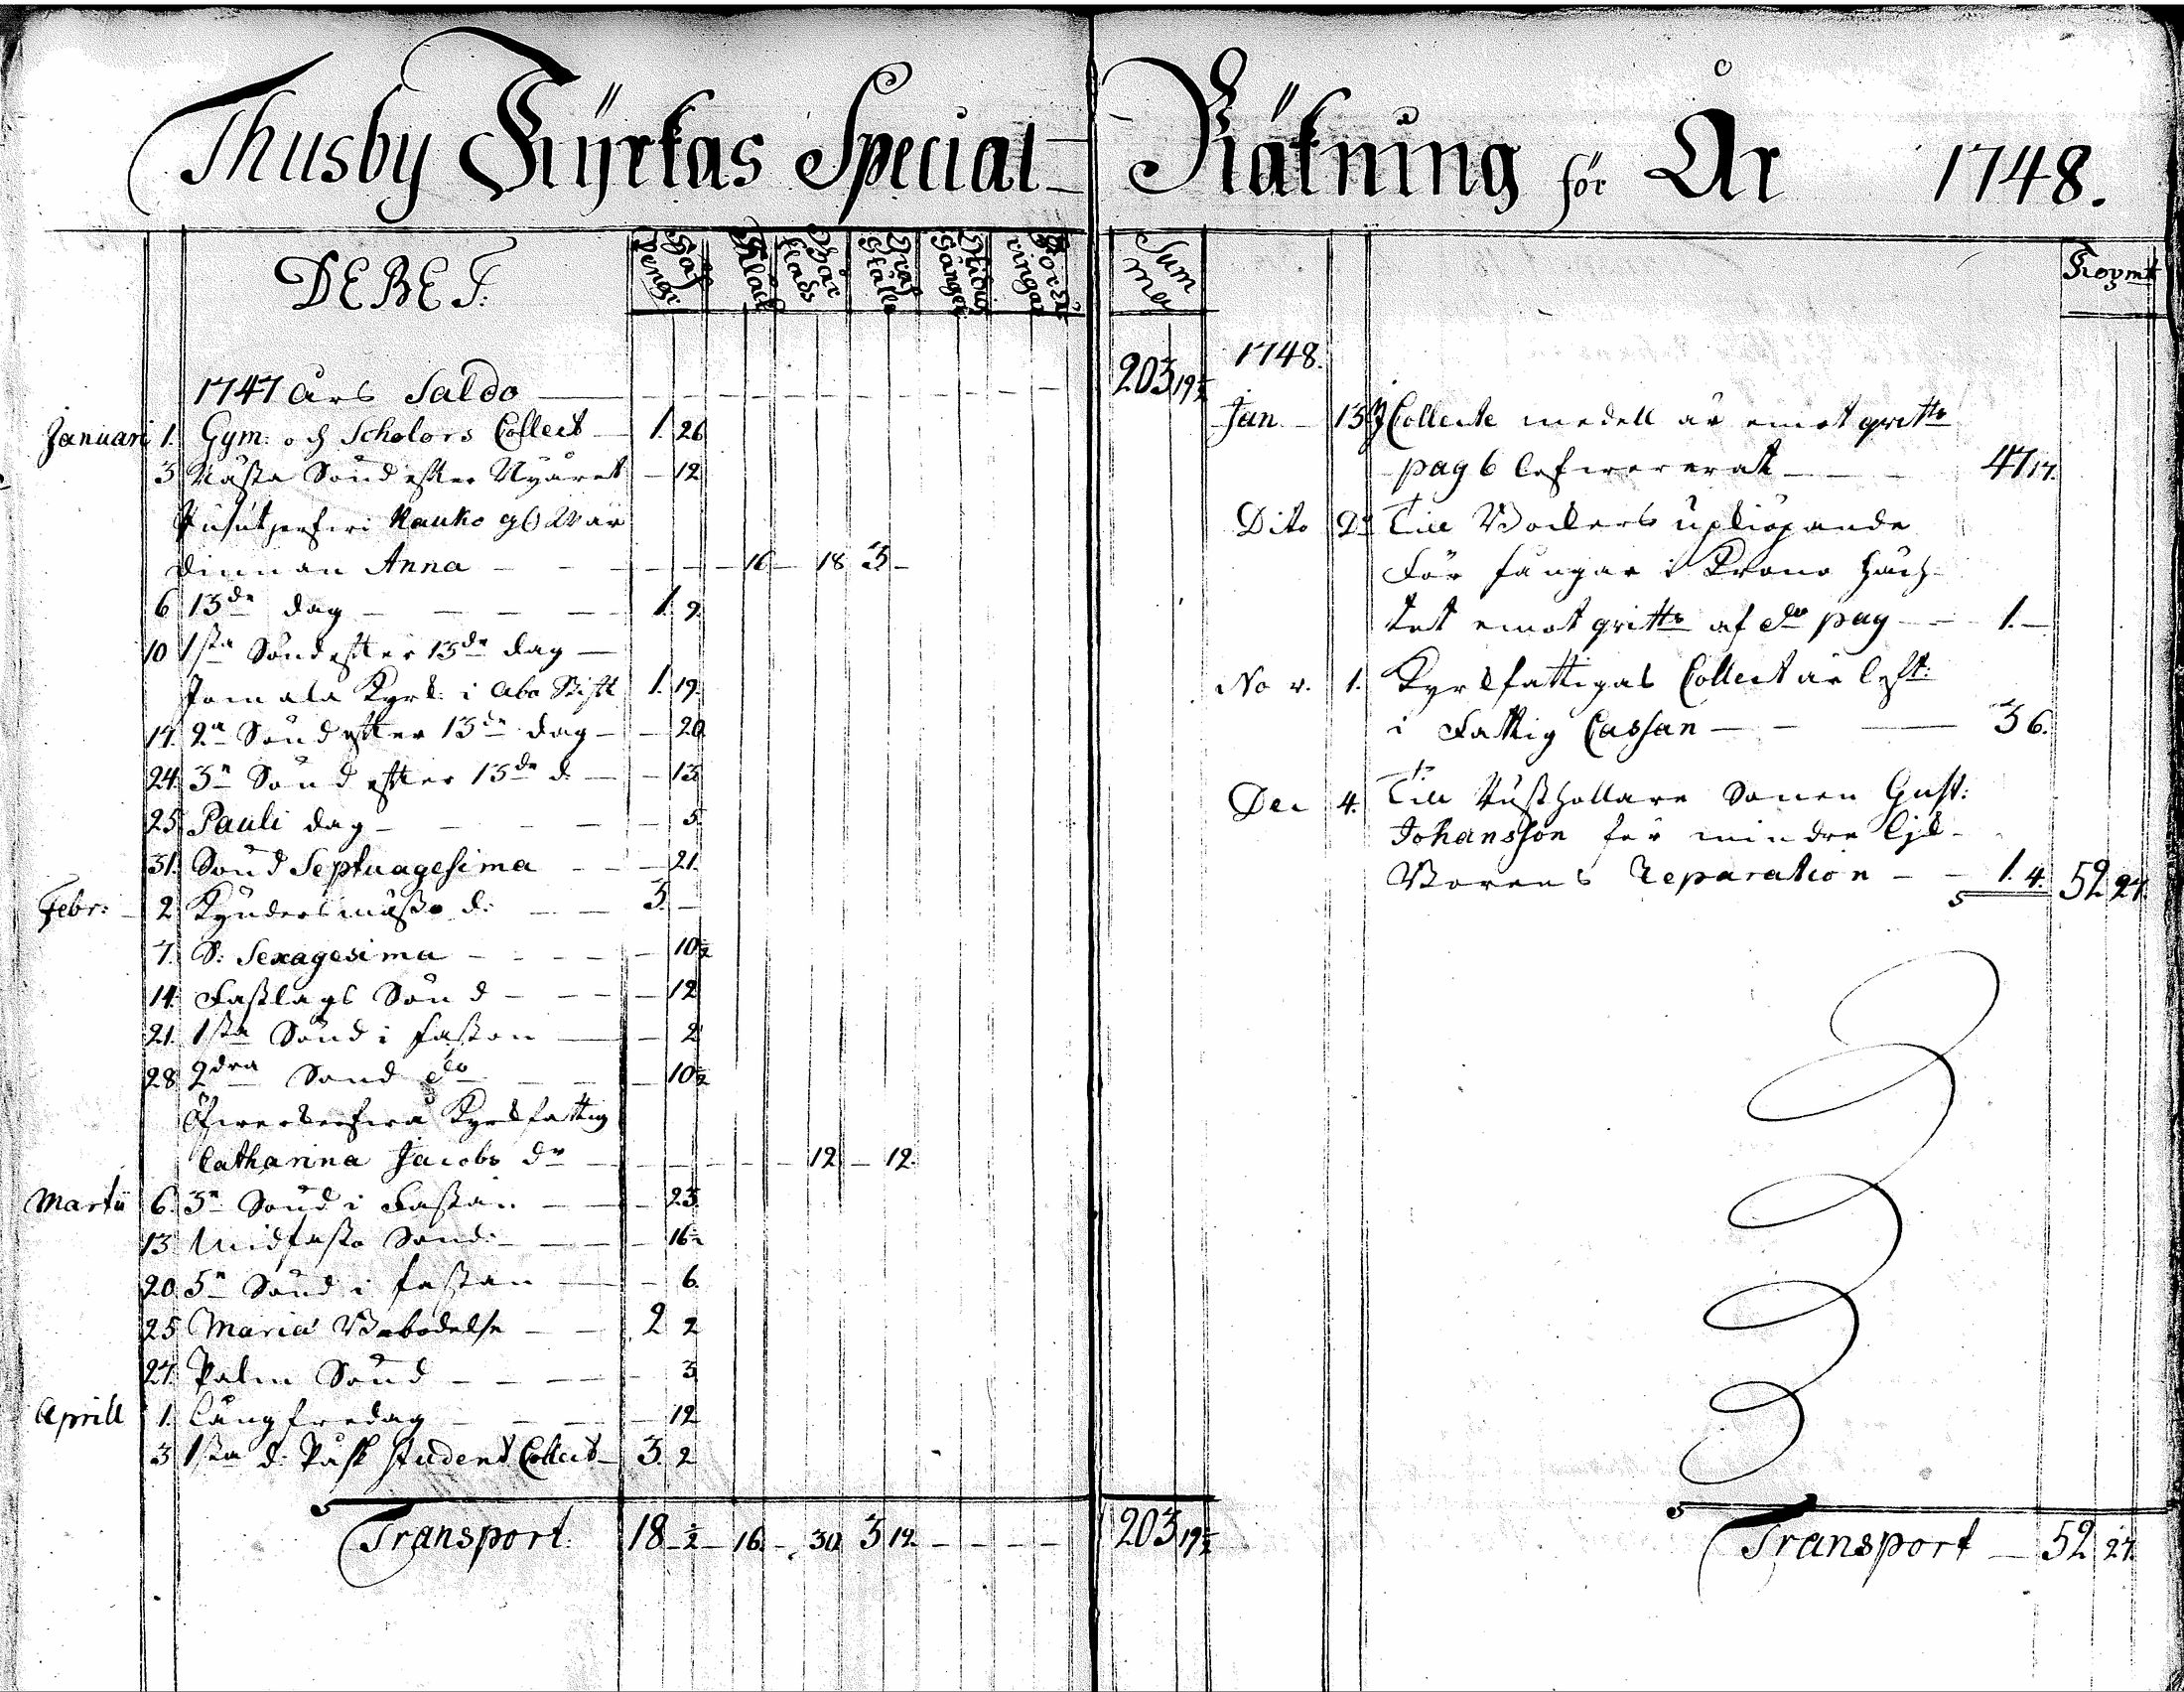 Thusby Kyrkas Special Räkning för År 1748.
DEBET:
Håf Pengr
Klock
Bår klads
Graf Ställe
Summa
1747 Års Saldo 203 19½
Januari 1. Gym: och Scholars Collect 1. 26
3 Nästa Sönd efter Nyåret 12
dinnan Anna 16 18 3
6 13de dag 1. 9
10 1sta Sönd efter 13de dag
Jomala Kyrk: i Abo Stift 1. 19.
17. 2a Sönd efter 13de dag 20
24. 3a Sönd efter 13de d. 13
25. Pauli dag 5
31. Sönd Septuagesima 21.
Febr: 2 Kyndersmässo d: 3.
7. S: Sexagesima 10½
14. Fastlags Sönd 12
21. 1sta Sönd i fastan 2
28 2dra Sönd do 10½
Kyrkfattig
Catharina Jacobs dr 12 12.
Martii 6. 3a Sönd i Fastan 23
13 Midfasto Sönd: 16½
20 5a Sönd i fastan 6.
25 Mariæ Bebodelse 2 2
27. Palm Sönd 3
Aprill 1. Långfredag 12
3 1sta d: Påsk Student Collect 3. 2
Transport. 18 ½ 16. 30 3 12. 203 19½
1748.
Jan. 13 Collecte medell är emot qvitto
pag 6 lefwererat 47 17.
Dito Do Till Böckers upköpande
för fångar i Krono häch-
tet emot qvitto af do pag 1.
Nov. 1. Kyrkfattigas Collect är left:
i Fattig Cassan 3 6.
Dec 4. Till Rusthollare Sonen Gust:
Johansson för mindre
Reparation 1. 4. 52 27.
Transport 52 27.